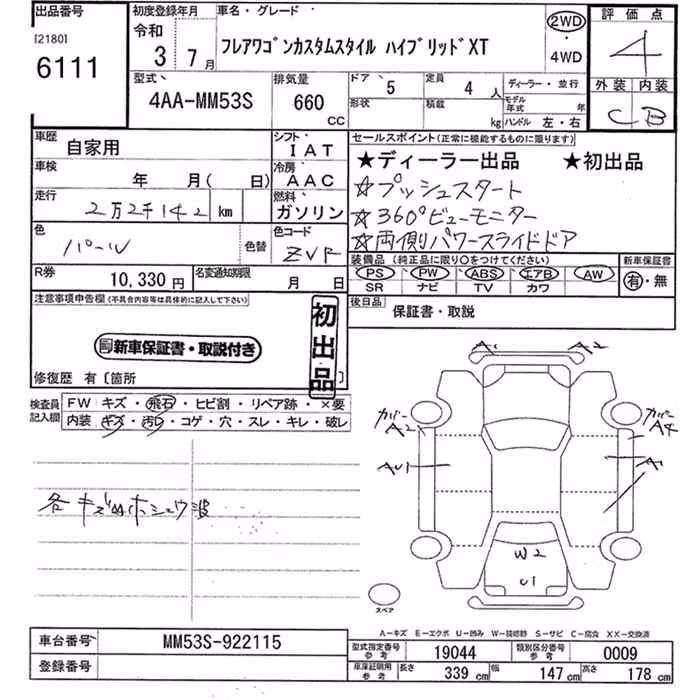 出品番号 初度登録年月 車名・グレード 2WD 評価点
[2180] 令和
6111 3年 7月 フレアワゴンカスタムスタイル ハイブリッドXT ・ 4
4WD
型式 排気量 ドア 5 定員 4人 ディーラー・並行 外装 内装
4AA-MM53S 660 CC 形状 積載 kg モデル年式 年 C B
ハンドル 左・右
車歴 自家用 シフト IAT セールスポイント(正常に機能するものに限ります)
車検 年 月( 日) 冷房 AAC ★ディーラー出品 ★初出品
走行 2万2千142 km 燃料 ガソリン ☆プッシュスタート
☆360°ビューモニター
色 パール 色替 色コード ZVR ☆両側パワースライドドア
装備品(純正品に限り○をつけてください) 新車保証書
R券 10,330円 名変通知期限 月 日 PS PW ABS エアB AW 有・無
SR ナビ TV カワ
注意事項申告欄(不具合内容等は具体的に記入して下さい) 後日品 保証書・取説
初出品
新車保証書・取説付き
修復歴 有〔箇所 〕
検査員記入欄 FW キズ・飛石・ヒビ割・リペア跡・×要
内装 キズ・汚レ・コゲ・穴・スレ・キレ・破レ
A1 A2
カバー A2 カバー A4
AU1 A1
各キズ凹ホシュウ波
W2
U1
スペア
A-キズ E-エクボ U-凹み W-補修跡 S-サビ C-腐食 XX-交換済
車台番号 MM53S-922115 型式指定番号 参考 19044 類別区分番号 参考 0009
登録番号 車庫証明用 参考 長さ 339 cm 幅 147 cm 高さ 178 cm